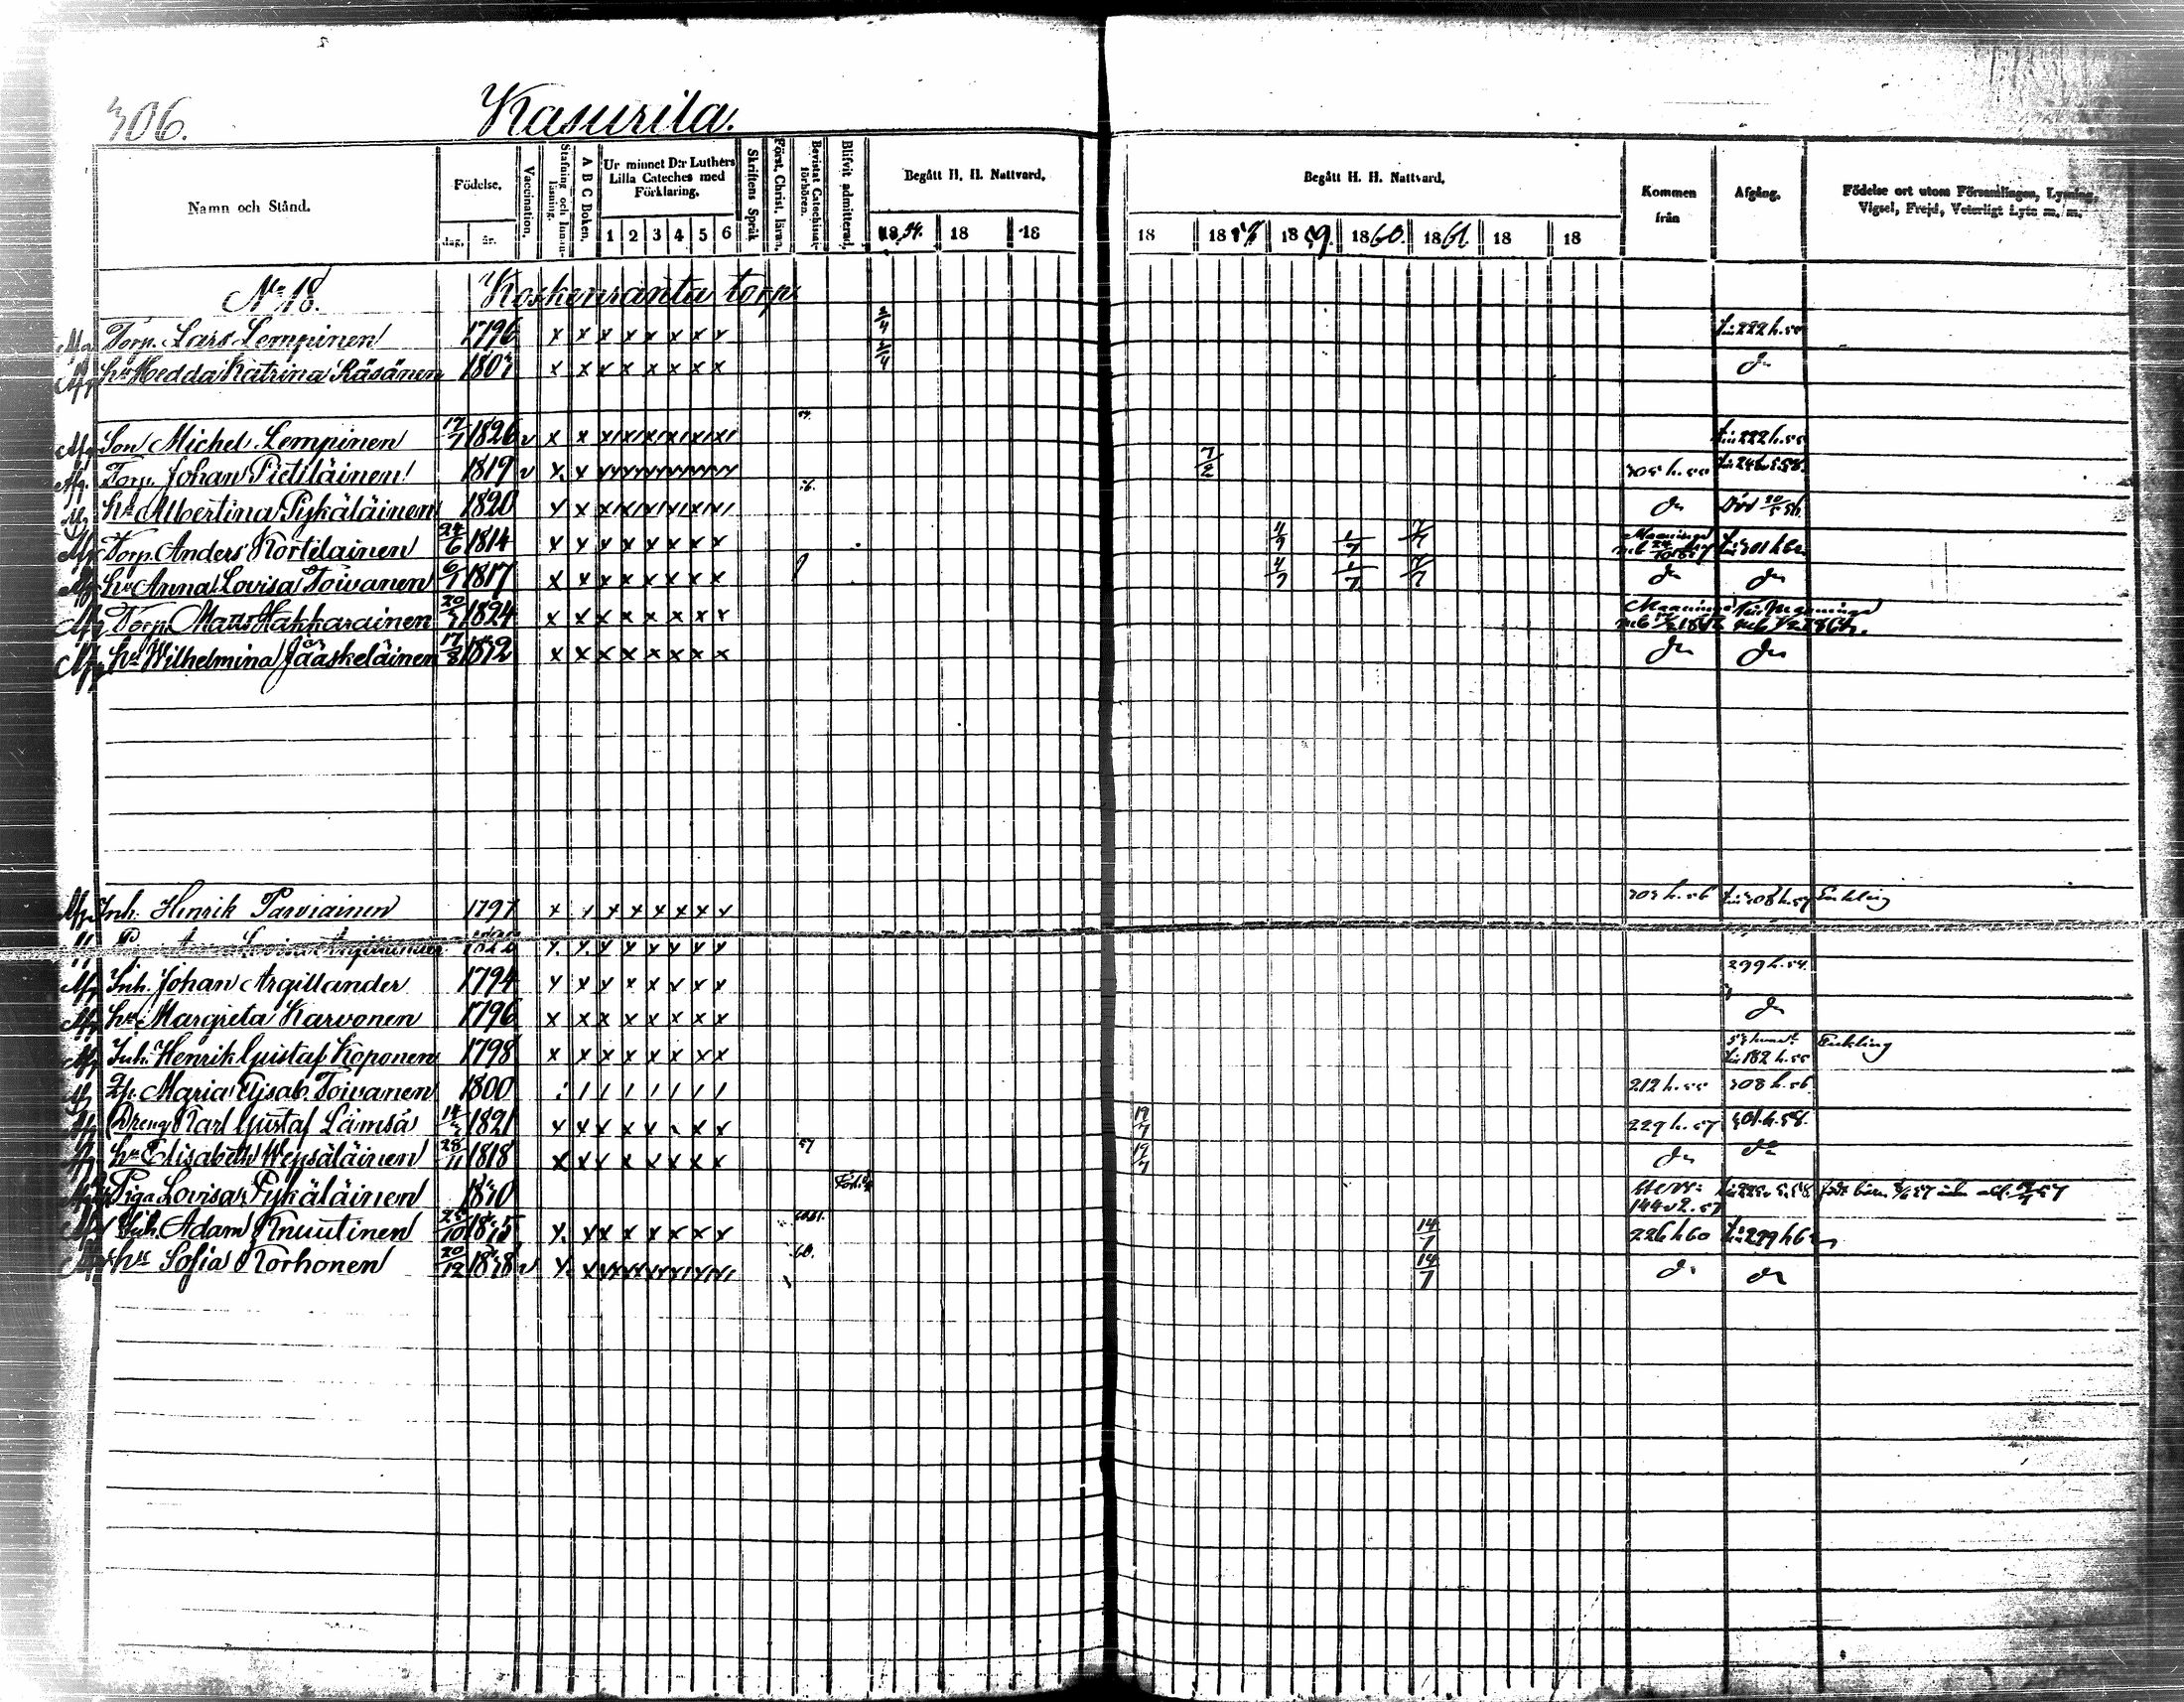 306.
Kasurila.
Namn och Stånd.
Födelse,
dag,
år.
Vaccination.
Stafning och Innan-läsning.
A B C Boken.
Ur minnet D:r Luthers Lilla Cateches med Förklaring.
1 2 3 4 5 6
Skriftens Språk
Förstå Christ. läran.
Bevistat Catechisat. förhören.
Blifvit admitterad.
Begått H. H. Nattvard.
18 54. 18 18
Begått H. H. Nattvard.
18 18 58 18 59. 18 60. 18 61. 18 18
Kommen från
Afgång.
Födelse ort utom Församlingen, Lysning, Vigsel, Frejd, Veterligt Lyte m./m.
No 18. Koskenranta torp
Torp. Lars Lempinen 1796 x x x x x x x x 2/4
Hu Hedda Katrina Räsänen x x x x x x x x 2/4 do
Son Michel Lempinen 17/7 1826 v x x
Torp. Johan Pietiläinen 1819 v x x 7/2 305 h. 55
Hu Albertina Pykäläinen 1820 do Död 20/5 58.
Torp. Anders Kortelainen 24/6 1814 x x x x x x x x 4/7 1/7 7/7 Maaninga
Hu Anna Lovisa Toivanen 6/1 1817 x x x x x x x x 4/7 1/7 7/7 do do
Torp. Matts Hakkarainen 1824 x x x x x x x x Maaninga Maaninga
Hu Wilhelmina Jääskeläinen 17/8 1832 x x x x x x x x do do
Inh. Henrik Parviainen 1797 x x x x x x x x Enkling
Inh. Johan Argillander 1794 x x x x x x x x 299 h. 54.
Hu Margreta Karvonen 1796 x x x x x x x x do
Inh. Henrik Gustaf Koponen 1798 x x x x x x x x 182 h. 55 Enkling
Maria Elisab. Toivanen 1800 212 h. 55 308 h. 56
Dreng Karl Gustaf Lämsä 1821 x x x x x x x x 19/7 229 h. 57 301. h. 58.
Hu Elisabeth Wepsäläinen 28/11 1818 x x x x x x x x 57 19/7 do do
Piga Lovisa Pykäläinen 1830
Inh. Adam Knuutinen 25/10 1835 x x x x x x x x 60.61. 14/7 226 h 60
Hu Sofia Korhonen 20/12 1838 v x x 60. 14/7 do do